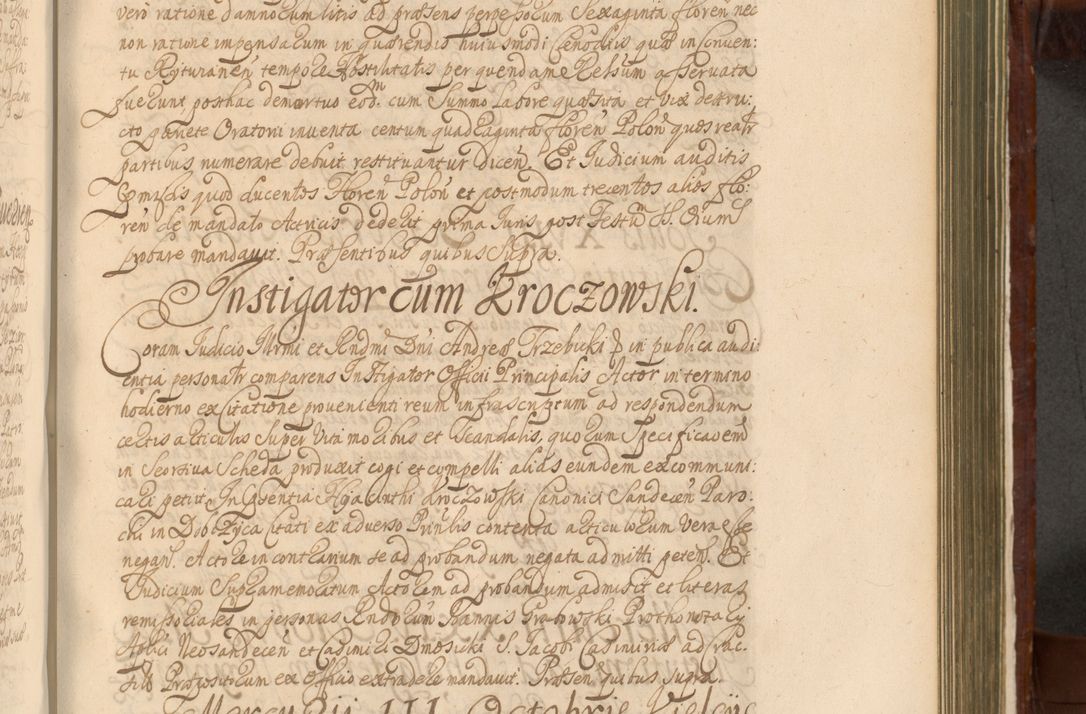 vero ratione damnorum litis ad præsens perpessorum Sexaginta floren nec
non ratione impensarum in quærendis huiusmodi Cenodiis quæ in Conven:
tu Rytuianen tempore Hostilitatis per quendam Relsum asservata
fuerunt posthac demortuo eodm cum Summo Labore quæsita et vix detru:
cto pariete Oratorii inventa centum quadraginta floren Polon quos reatr
partibus numerare debuit restituantur dicen. Et Iudicium auditis
præmissis quod ducentos floren Polon et postmodum trecentos alios flo:
ren de mandato Actricis dederit prima Iuris post Festum SS. Orium
probare mandavit. Præsentibus quibus Supra.
Instigator cum Kroczowski.
Coram Iudicio Illrmi et Rndmi Dni Andreæ Trzebicki in publica audi:
entia personalr comparens Instigator Officii Principalis Actor in termino
hodierno ex Citatione provenienti reum infrascriptum ad respondendum
certis articulis Super Vita moribus et Scandalis, quorum Specificaoem
in Seorsiva Scheda produxit cogi et compelli alias eundem excommuni:
cari petiit. In Præsentia Hyacinthi Kroczowski Canonici Sandecen Paro:
chi in Dobrzyca Citati ex adverso Prinlis contenta articulorum vera esse
negan. Actore in contrarium se ad probandum negata admitti peten. Et
Iudicium Supramemoratum Actorem ad probandum admisit et literas
remissoriales in personas Rndorum Ioannis Grabowski Prothonotary
Aplici Neosandecen et Casimiri Dmosicki S. Iacobi Casimiriæ ad Crac.
Præpositorum ex Officio extradere mandavit. Præsen quibus Supra.
Mercurii III Octobris Kielciis